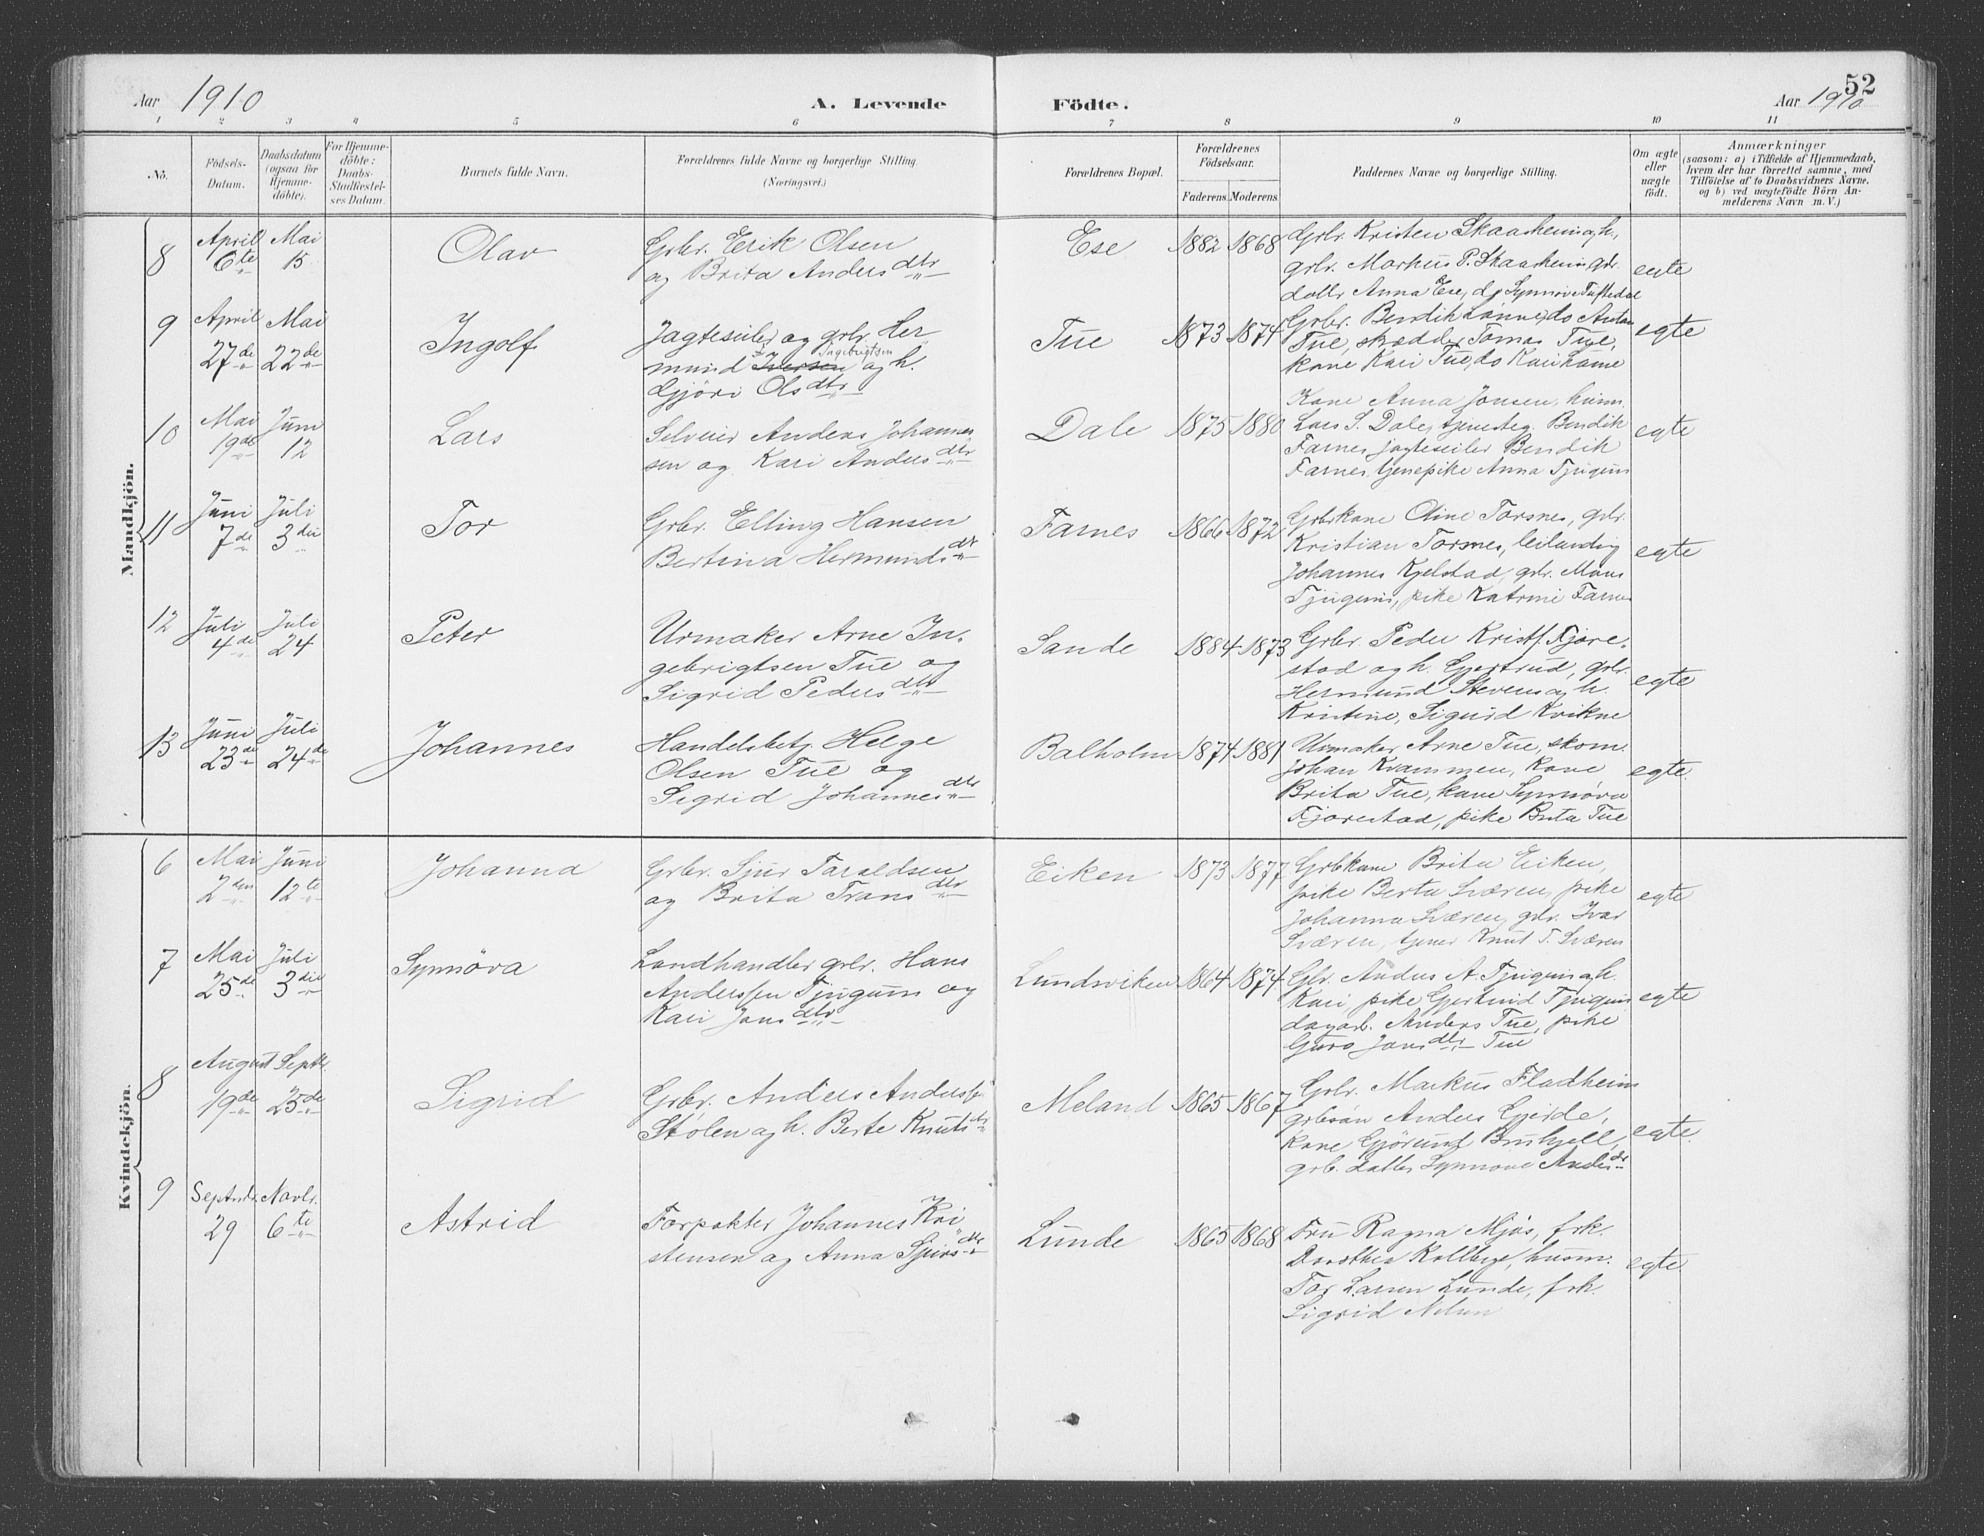 52
Aar 1910 A. Levende Födte. Aar 1910
1 2 3 4 5 6 7 8 9 10 11
No.
Födsels-
Datum.
Daabsdatum
(ogsaa for
Hjemme-
döbte).
For Hjemme-
döbte:
Daabs-
Stadfæstel-
ses Datum.
Barnets fulde Navn.
Forældrenes fulde Navne og borgerlige Stilling.
(Næringsvei.)
Forældrenes Bopæl.
Forældrenes
Födselsaar.
Faderens. Moderens.
Faddernes Navne og borgerlige Stilling.
Om ægte
eller
uægte
födt.
Anmærkninger
(saasom: a) i Tilfælde af Hjemmedaab,
hvem der har forrettet samme, med
Tilföielse af to Daabsvidners Navne,
og b) ved uægtefödte Börn An-
melderens Navn m. V.)
Mandkjön.
8 April 6te Mai 15 Olav
Grbr. Erik Olsen
og Brita Andersdtr
Ese 1882 1868
Grbr. Kristen Skaasheim og h.,
grbr. Markus P. Skaasheim, gbr.
dattr Anna Ese, do Synnöve Tuftedal
egte
9 April 27de Mai 22de Ingolf
Jagteseiler og grbr. Her
mund Iversen Ingebrigtsen og h.
Gjöri Olsdtr
Tue 1873 1874
Grbr. Bendik Lonne, do Anton
Tue, skrædder Tomas Tue,
kone Kari Tue, do Kari Lonne
egte
10 Mai 19de Juni 12 Lars
Selveier Anders Johannes
sen og Kari Andersdtr
Dale 1875 1880
Kone Anna Jonsen, husm.
Lars S. Dale, tjenesteg. Bendik
Farnes, jagteseiler Bendik
Farnes, tjenepike Anna Tjugum
egte
11 Juni 7de Juli 3die Tor
Grbr. Elling Hansen
Bertina Hermundsdtr
Farnes 1866 1872
Grbrkone Oline Torsnes, grbr.
Kristian Torsnes, leilending
Johannes Kjelstad, grbr. Mons
Tjugum, pike Katrine Farnes
egte
12 Juli 4de Juli 24 Peter
Urmaker Arne In-
gebrigtsen Tue og
Sigrid Pedersdtr
Sande 1884 1873
Grbr. Peder Kristf. Fjære-
stad og h. Gjertrud, grbr.
Hermund Stevens og h.
Kristine, Sigurd Kvikne
egte
13 Juni 23de Juli 24de Johannes
Handelsbetj. Helge
Olsen Tue og
Sigrid Johannesdtr
Balholm 1874 1881
Urmaker Arne Tue, skom.
Johan Kvammen, kone
Brita Tue, kone Synnöva
Fjærestad, pike Brita Tue
egte
Kvindekjön.
6 Mai 2den Juni 12te Johanna
Grbr. Sjur Taraldsen
og Brita Transdtr
Eiken 1873 1877
Grbkone Brita Eiken,
pike Berta Sværen, pike
Johanna Sværen, grbr. Ivar
Sværen, tjener Knut T. Sværen
egte
7 Mai 25de Juli 3die Synnöva
Landhandler grbr. Hans
Anderssen Tjugum og
Kari Jonsdtr
Lundsviken 1864 1874
Gbr. Anders A. Tjugum og h.
Kari, pike Gjertrud Tjugum
dagarb. Anders Tue, pike
Guro Jonsdtr Tue
egte
8 August 19de Septbr. 25de Sigrid
Grbr. Anders Anderss.
Stölen og h. Berte Knutsdtr
Meland 1865 1867
Grbr. Markus Fladheim
grbsön Anders Gjerde,
kone Gjörund Bruhjell,
grb. datter Synnöve Andersdtr
egte
9 Septmbr. 29 Novbr. 6te Astrid
Forpakter Johannes Kri
stensen og Anna Sjursdtr
Lunde 1865 1868
Fru Ragna Mjös, frk.
Dorothea Kollberg, husm.
Tor Larsen Lunde, frk.
Sigrid Nelsen
egte